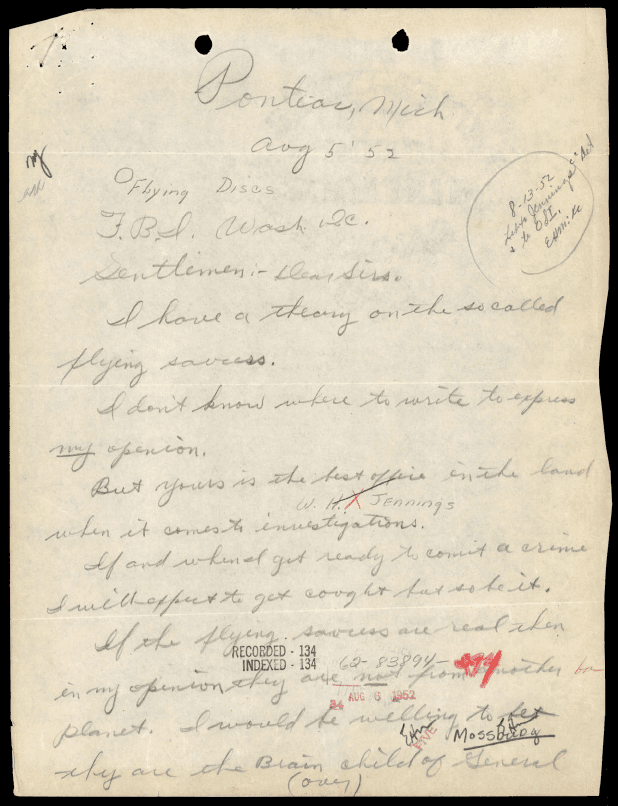 Pontiac, Mich
Aug 5 '52
Flying Discs
F.B.I. Wash. Dc.
8-13-52
Jennings
& to OSI.
Gentlemen:- Dear Sirs.
I have a theory on the so called
flying saucess.
I don't know where to write to express
my openion.
But yours is the best office in the land
W. H. Jennings
when it comes to investigations.
If and when I get ready to comit a crime
I will expect to get cought but so be it.
If the flying saucess are real then
RECORDED - 134
INDEXED - 134
62-83894-
994
in my openion they are not from another
24 AUG 6 1952
planet. I would be willing to bet
FIVE
Mossburg
they are the Brain child of General
(over)